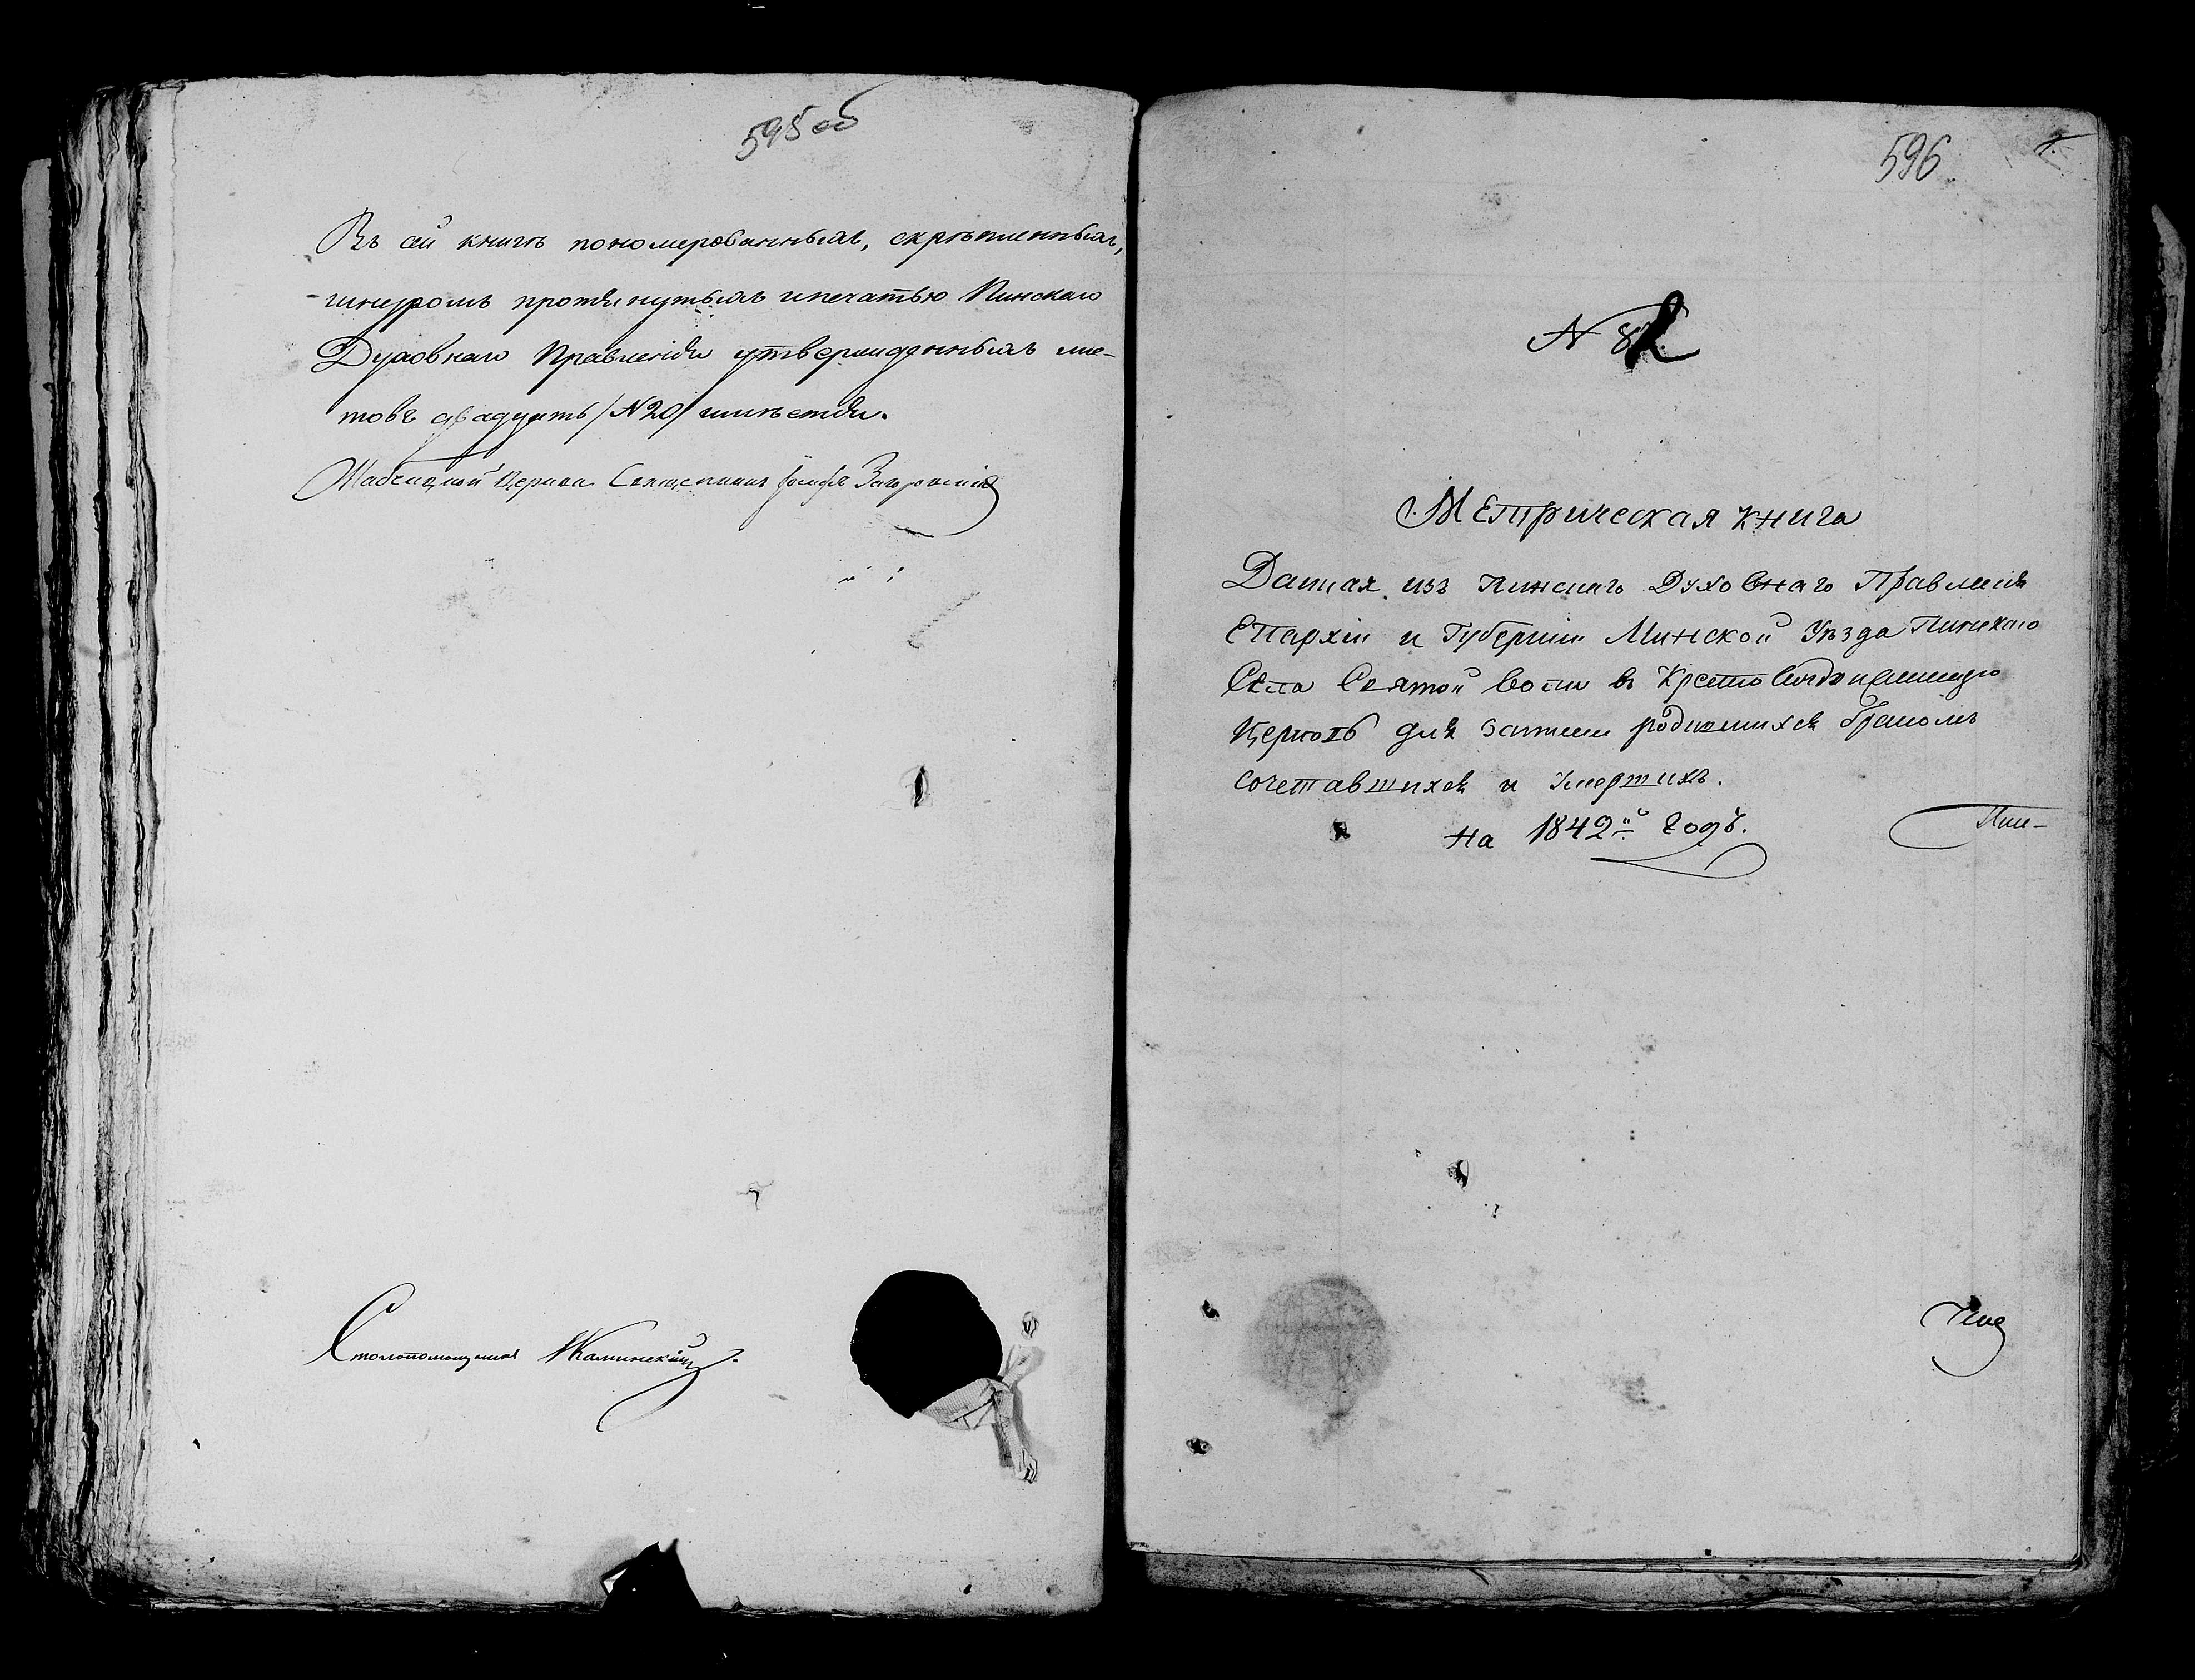 595 об
Въ сей книгѣ пономерованныхъ, скрѣпленныхъ,
шнуромъ протянутыхъ и печатью Пинскаго
Духовнаго Правленія утвержденныхъ лис-
товъ двадцать /N20/ имѣется.
Церкви Священникъ
Столопомощникъ Каминскій.
596
1.
N 82
Метрическая книга
Данная изъ Пинскаго Духовнаго Правленія
Епархіи и Губерніи Минской Уѣзда Пинскаго
Села Святой Воли въ Кресто
Церковь для записи родившихся бракомъ
сочетавшихся и умершихъ.
на 1842й годъ.